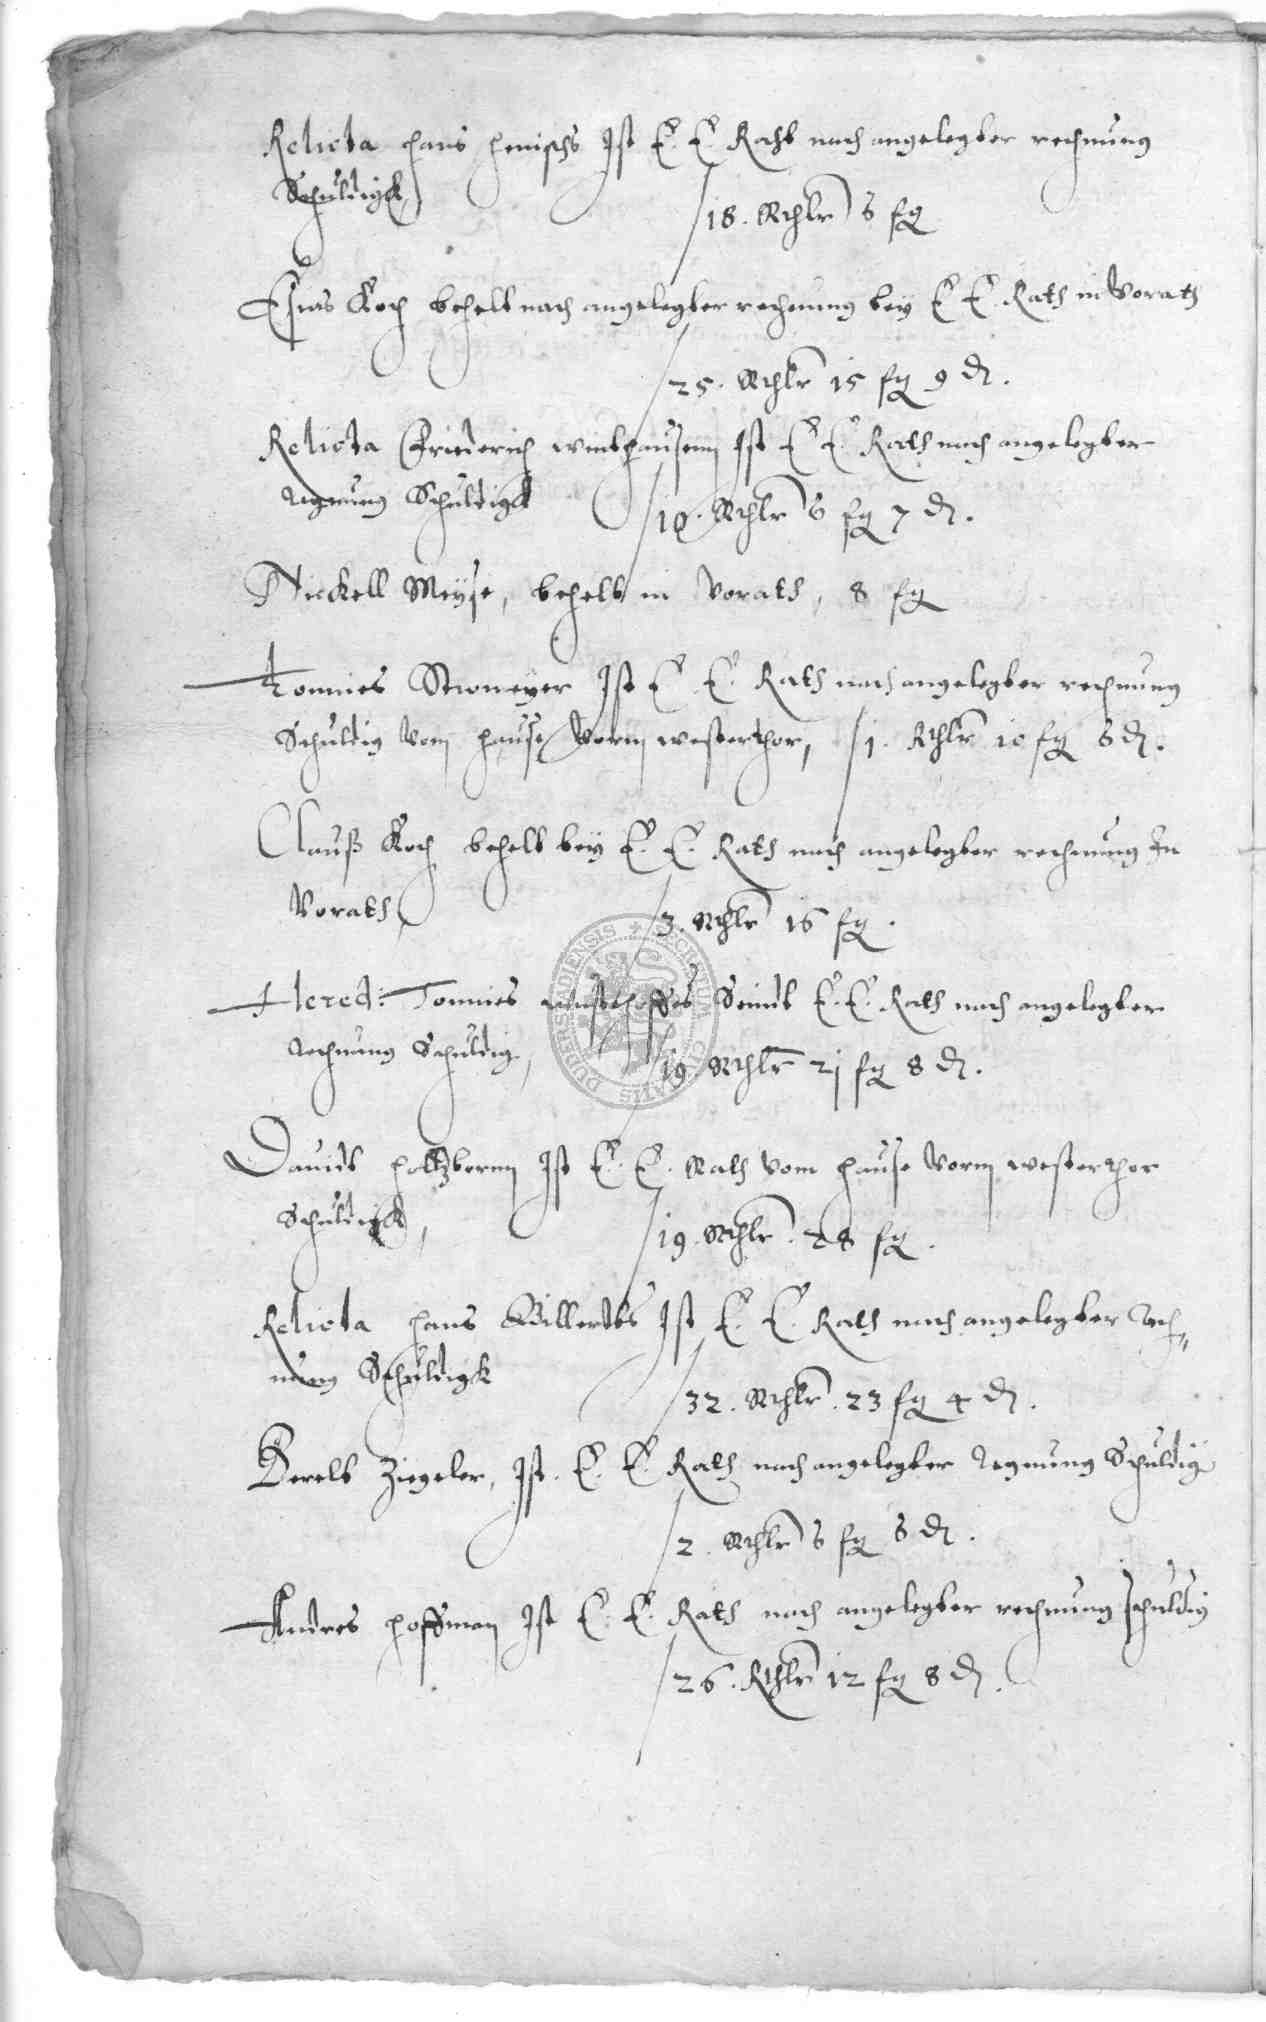 Relicta Hans Henischs Ist E. E. Raht nach angelegter rechnung
Schuldigk
18. Rthlr 6 fg
Esias Koch behelt nach angelegter rechnung bey E E. Rath in Vorath
25. Rthlr 15 fg 9 d.
Relicta Friederich winthausenn Ist E E. Rath nach angelegter
Regnung Schuldigk
10. Rthlr 6 fg 7 d.
Nickell Meyse, behelt in Vorath, 8 fg
Tonnies Stromeyer Ist E. E. Rath nach angelegter rechnung
Schuldig Vom Hause Vorm westerthor, 1. Rthlr 10 fg 6 d.
Clauß Koch behelt bey E. E. Rath nach angelegter rechnung In
Vorath
3. Rthlr 16 fg.
Hered: Tonnies Seindt E. E. Rath nach angelegter
Rechnung Schuldig,
19. Rthlr 21 fg 8 d.
Dauidt Holtzborn Ist E. E. Rath Vom Hause Vorm westerthor
Schuldigk,
19. Rthlr. 28 fg.
Relicta Hans Billerdts Ist E. E. Rath nach angelegter Rech„
nung Schuldigk
32. Rthlr. 23 fg 4 d.
Berelt Ziegeler, Ist. E. E. Rath nach angelegter Regnung Schuldig
2. Rthlr 6 fg 6 d.
Andres Hoffman Ist E. E. Rath nach angelegter rechnung schuldig
26. Rthlr 12 fg 8 d.
SECRETUM CIVITATIS DUDERSTADIENSIS